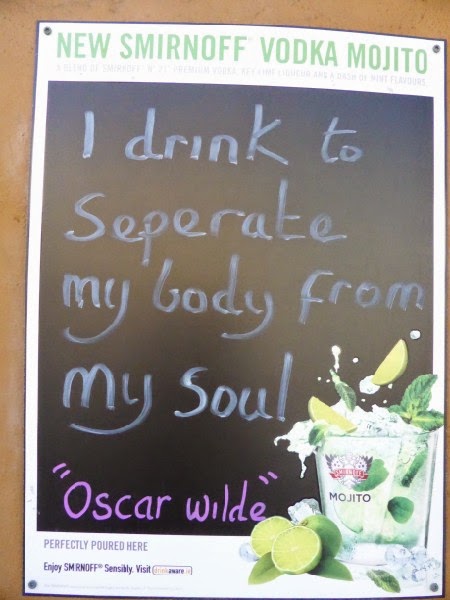 NEW SMIRNOFF VODKA MOJITO
A BLEND OF SMIRNOFF N° 21 PREMIUM VODKA, KEY LIME LIQUEUR AND A DASH OF MINT FLAVOURS
I drink to
Seperate
my body from
my soul
"Oscar wilde"
SMIRNOFF
MOJITO
PERFECTLY POURED HERE
Enjoy SMIRNOFF® Sensibly. Visit drinkaware.ie